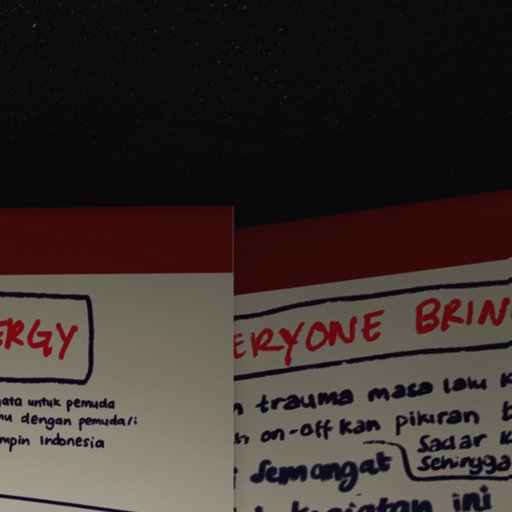 ERGY
untuk pemuda
dengan pemuda/i
Indonesia
ERYONE BRIN
trauma masa lalu
on-off kan pikiran
Semangat
Sadar
Sehingga
kegiatan ini